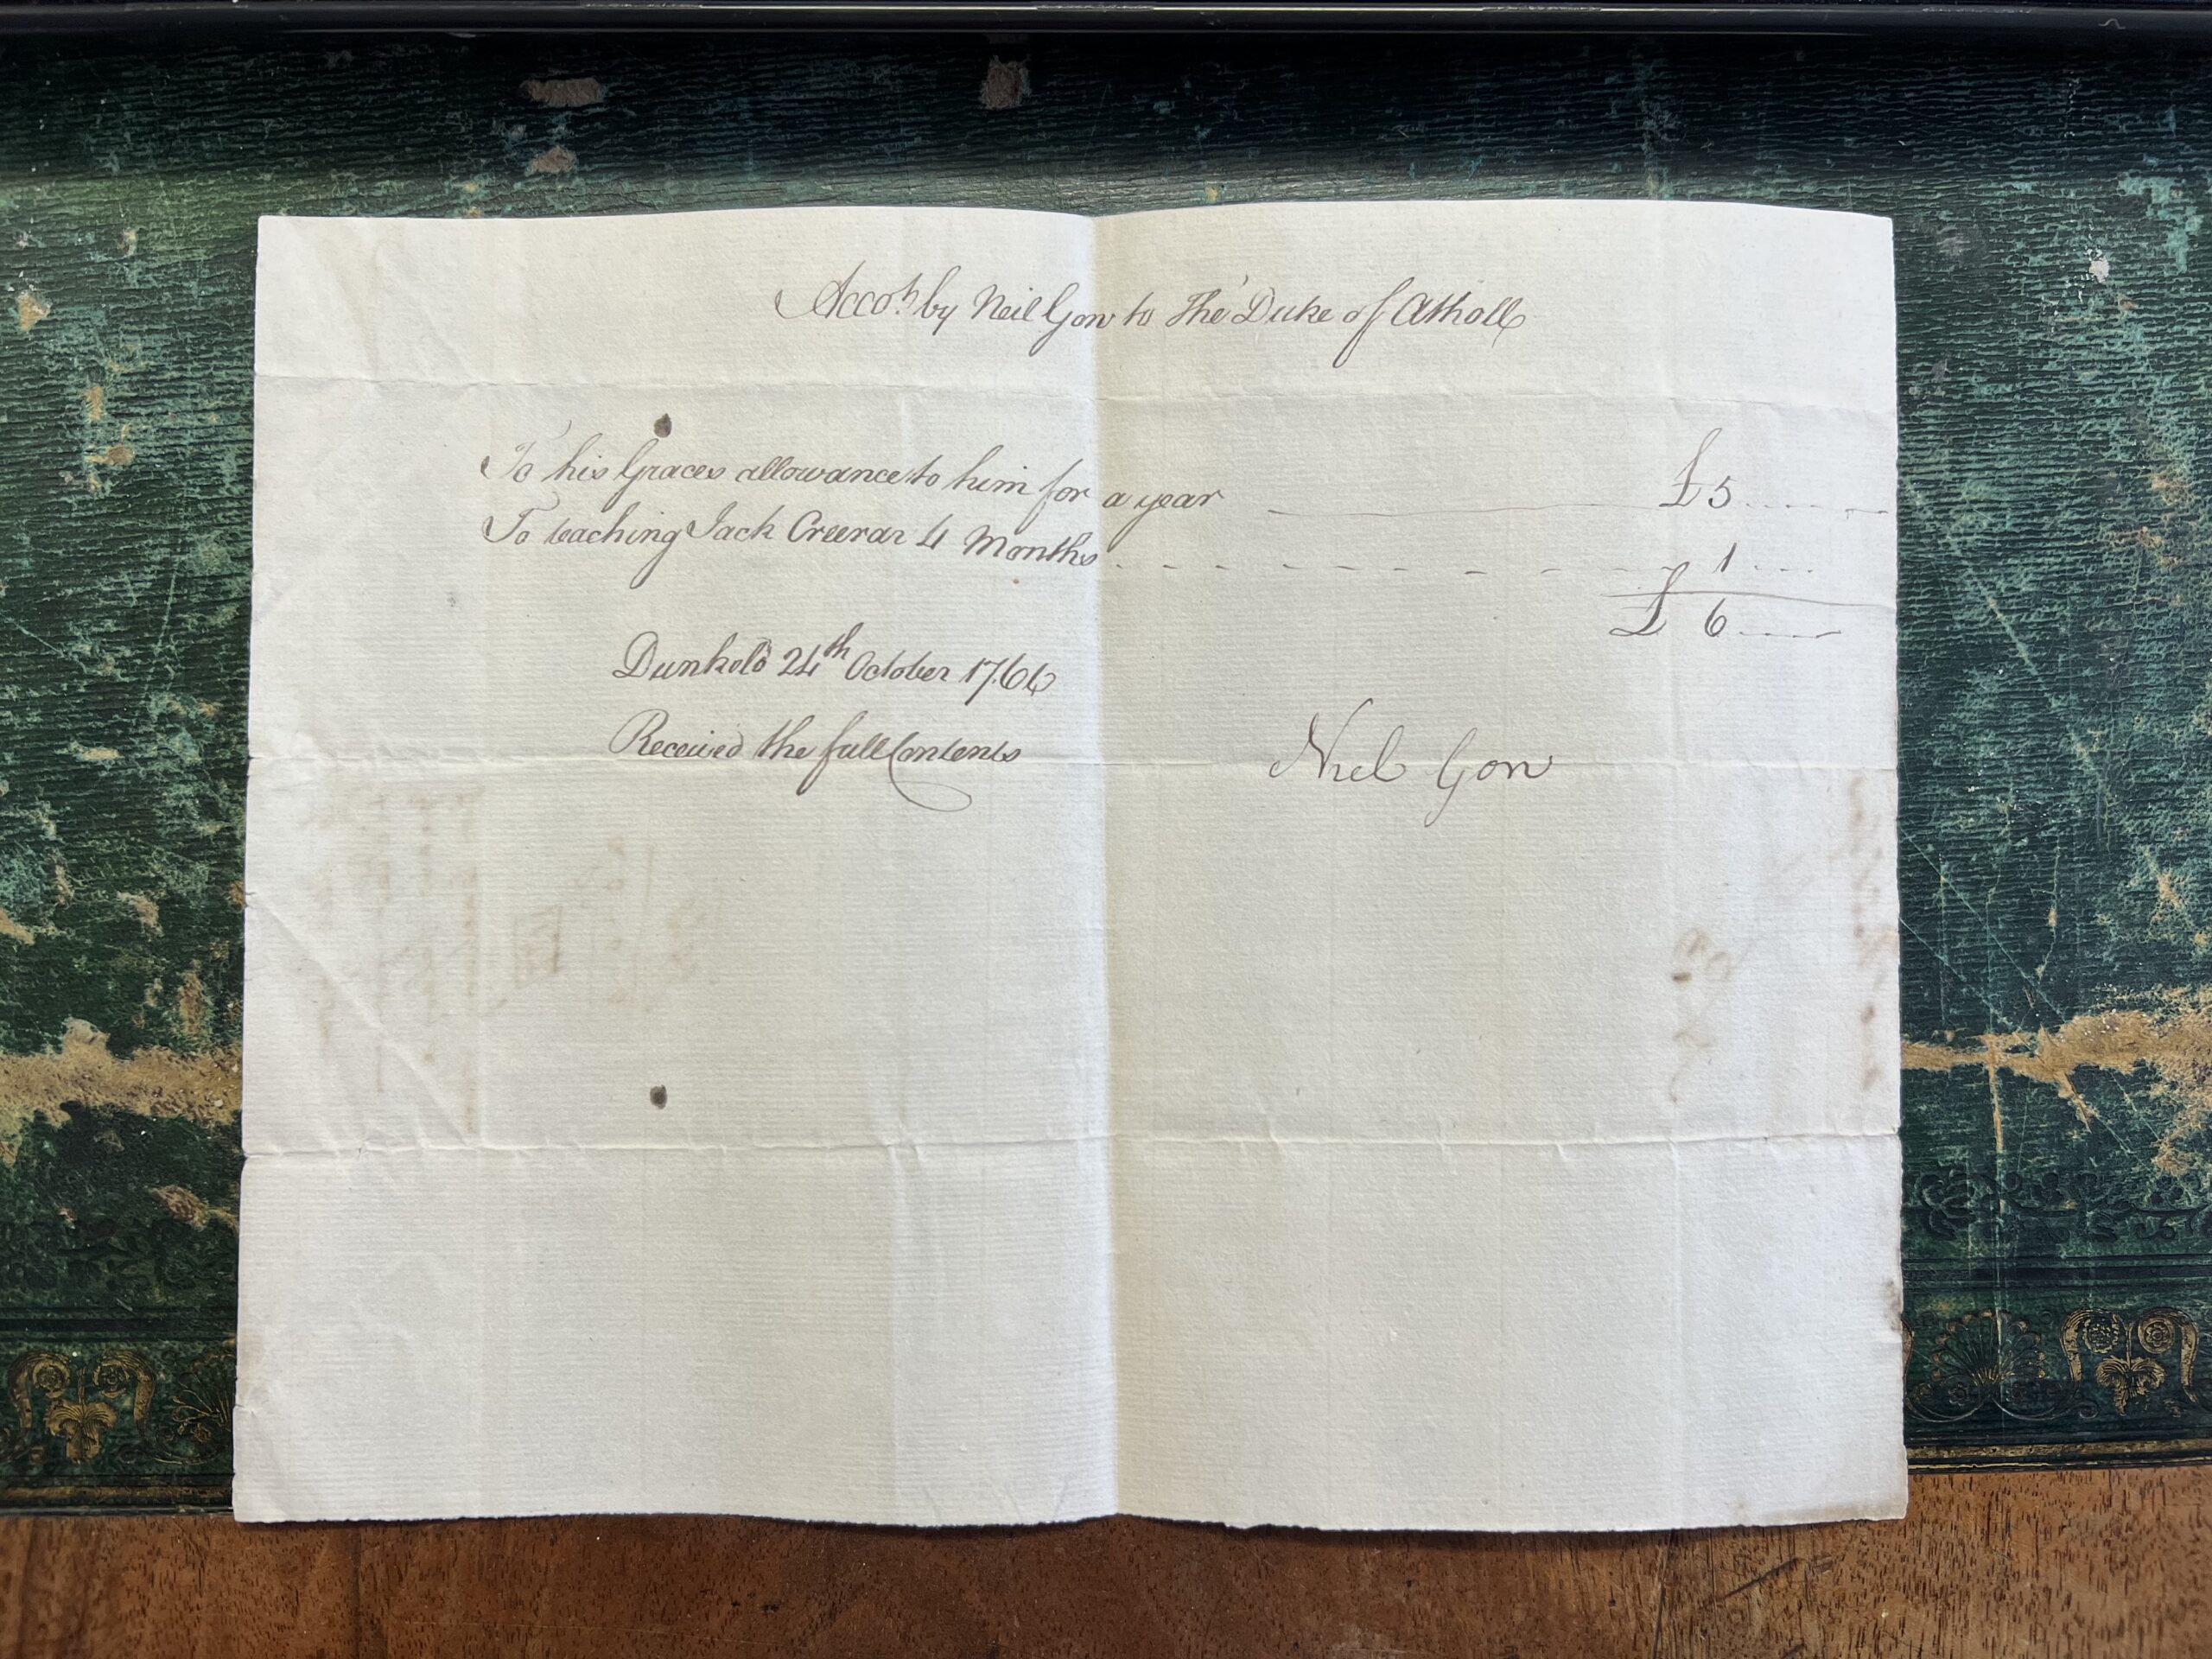 Accot. by Neil Gow to The Duke of Atholl
To his Graces allowance to him for a year £5
To teaching Jack Creerar 4 Months 1
£ 6
Dunkeld 24th October 1766
Received the full Contents
Niel Gow